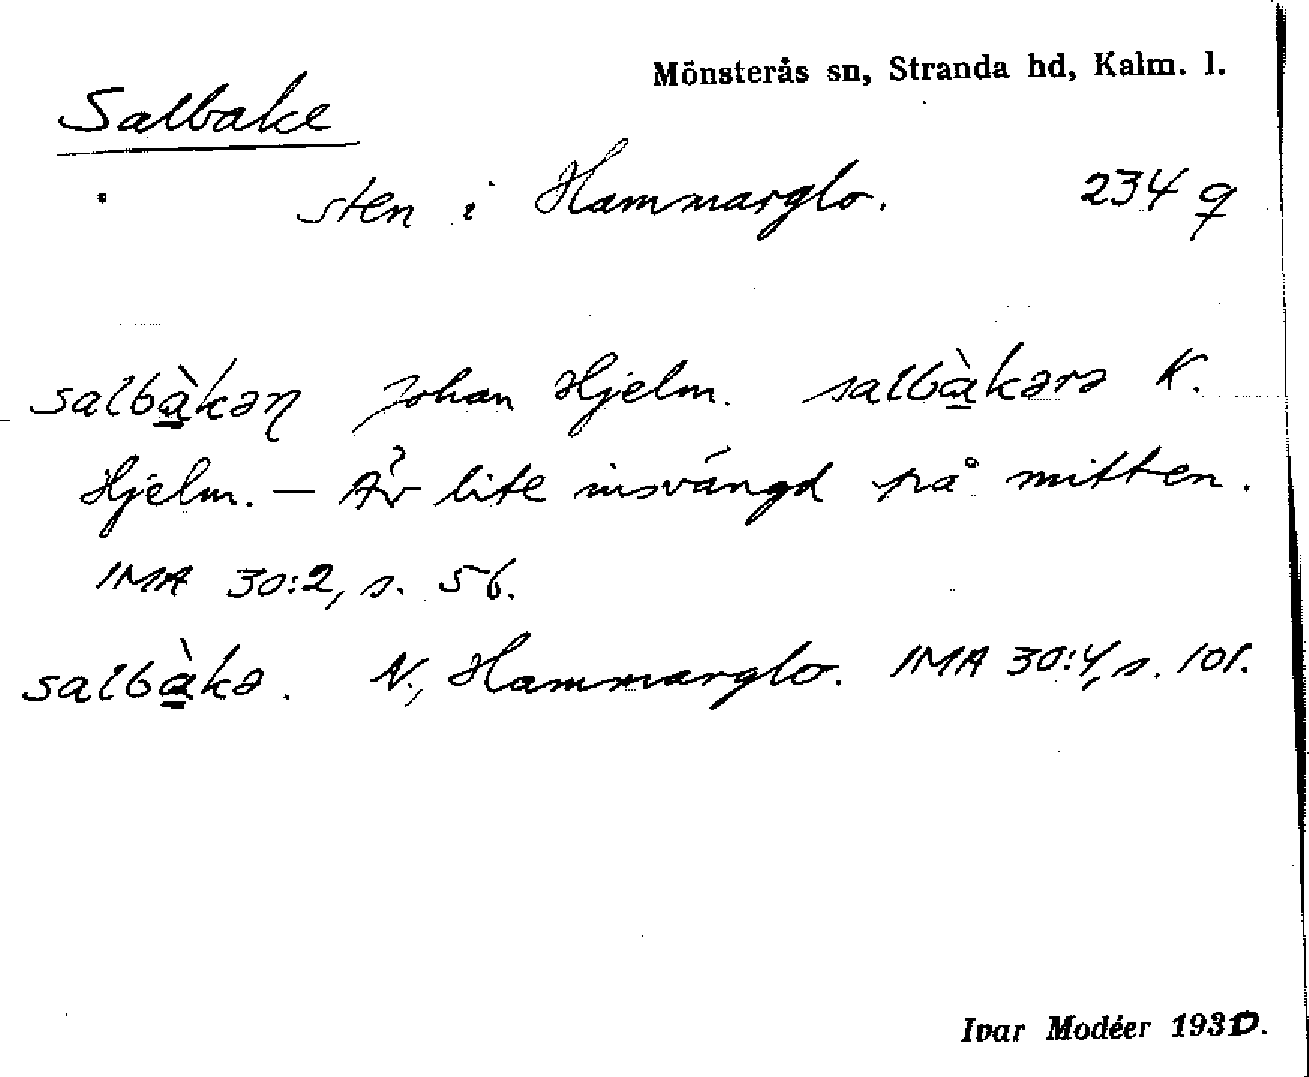 Mönsterås sn, Stranda hd, Kalm. l.
Salbake
sten i Hammarglo. 234 q
salbàkəɳ Johan Hjelm. salbàkərə K.
Hjelm. — Är lite insvängd på mitten.
IMA 30:2, s. 56.
salbàkə. N., Hammarglo. IMA 30:4, s. 101.
Ivar Modéer 1930.